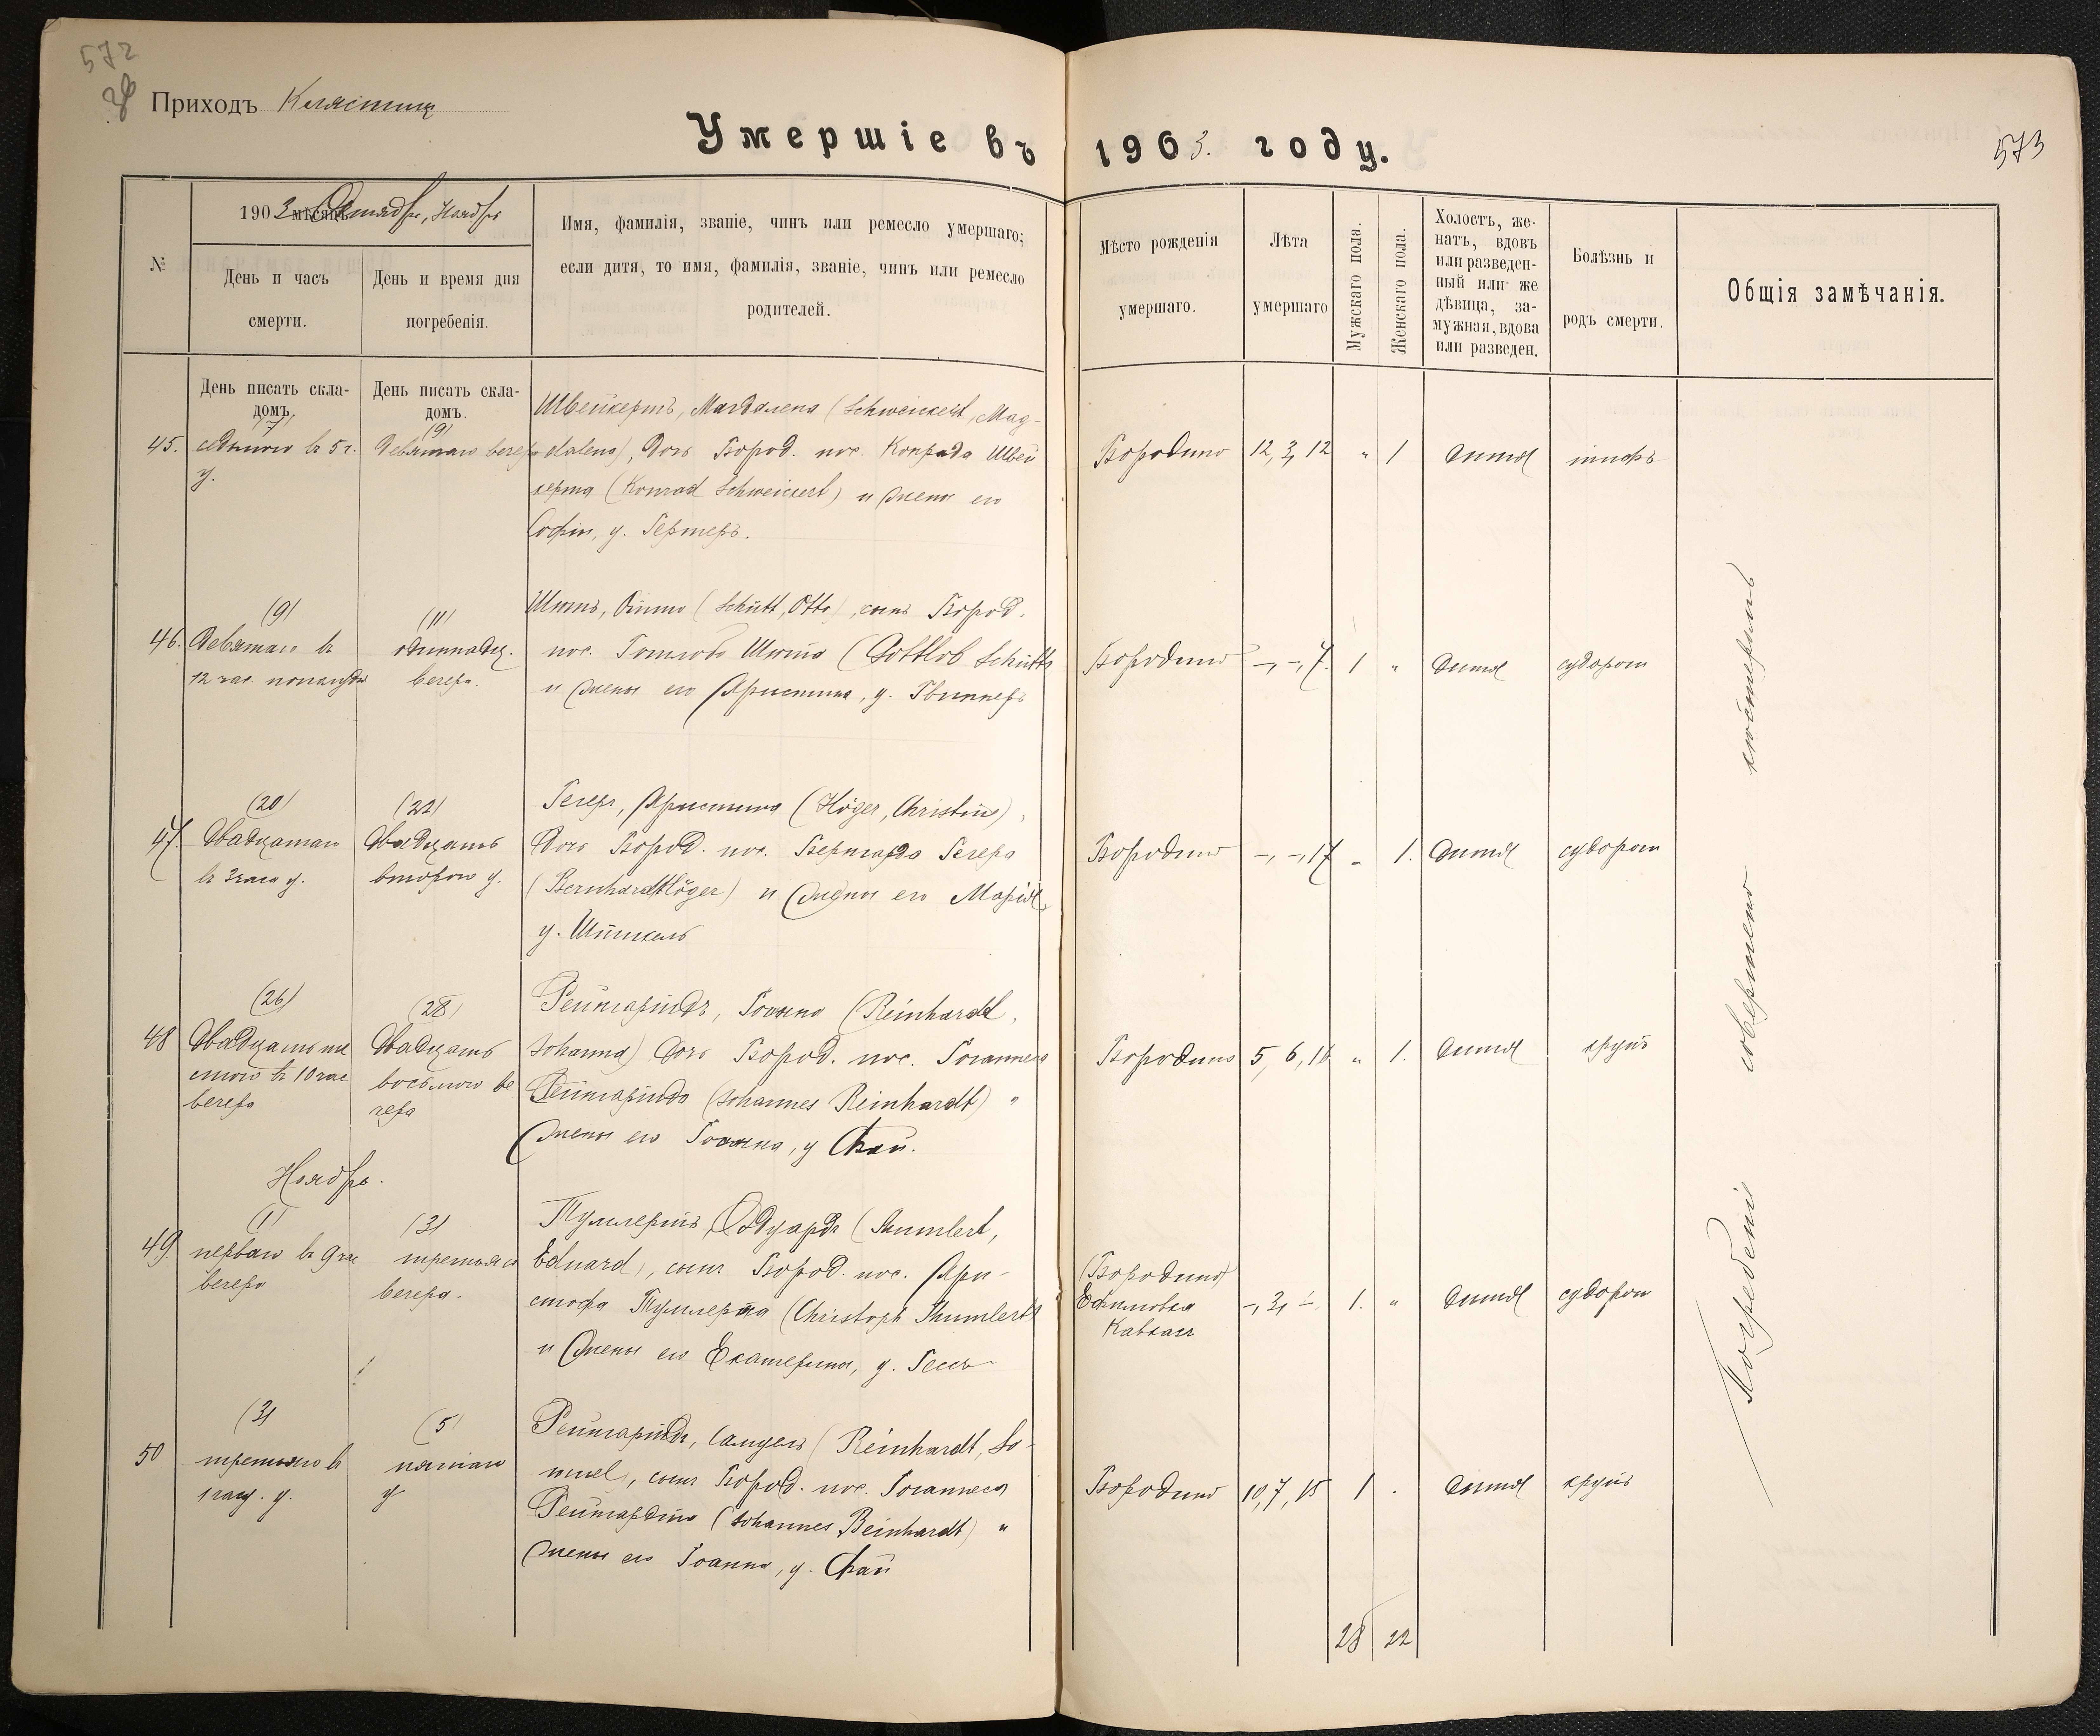 572
Приходъ Клястиц
Умершіе въ 1903. году.
573
№
1903 мѣсяцъ Октябрь, Ноябрь
День и часъ смерти.
День и время дня погребенія.
Имя, фамилія, званіе, чинъ или ремесло умершаго;
если дитя, то имя, фамилія, званіе, чинъ или ремесло
родителей.
Мѣсто рожденія умершаго.
Лѣта умершаго
Мужскаго пола.
Женскаго пола.
Холостъ, же-
натъ, вдовъ
или разведен-
ный или же
дѣвица, за-
мужная, вдова
или разведен.
Болѣзнь и родъ смерти.
Общія замѣчанія.
День писать скла-
домъ.
День писать скла-
домъ.
45.
(7)
седьмого въ 5 ч.
у.
(9)
девятаго вечера
Швейкертъ, Магдалена (Schweickert, Mag-
dalena), дочь Бород. пос. Конрада Швей-
керта (Konrad Schweickert) и жены его
Софіи, у. Гертеръ.
Бородино
12, 3, 12
"
1
дитя
тифъ
46.
(9)
девятаго въ
12 час. пополудн
(11)
одиннадц.
вечера.
Шюттъ, Отто (Schütt, Otto), сынъ Бород.
пос. Готлоба Шютта (Gottlob Schütt)
и жены его Христина, у. Гвиннеръ
Бородино
-, -, 7.
1
"
дитя
судорог
47.
(20)
двадцатаго
въ 3 часа у.
(22)
двадцать
второго у.
Гегеръ, Христина (Höger, Christin),
дочь Бород. пос. Бернгарда Гегера
(Bernhardt Höger) и жены его Марія
у. Штикель
Бородино
-, -, 17
"
1.
дитя
судорог
48
(26)
двадцать ше
стого въ 10 час
вечера
(28)
двадцать
восьмого ве
чера
Рейнгардтъ, Іоанна (Reinhardt,
Johanna) дочь Бород. пос. Іоганнеса
Рейнгардта (Johannes Reinhardt) "
жены его Іоанна, у Фай.
Бородино
5, 6, 16
"
1.
дитя
крупъ
Ноябрь.
49.
(1)
перваго въ 9 час
вечера
(3)
третьяго
вечера.
Тумлертъ, Эдуардъ (Thumlert,
Eduard), сынъ Бород. пос. Хри-
стофа Тумлерта (Christoph Thumlert)
и жены его Екатерины, у. Гессъ
(Бородино)
Ефимовка
Кавказъ
-, 3, -
1.
"
дитя
судорог
50
(3)
третьяго въ
1 часу. у.
(5)
пятаго
у
Рейнгардтъ, Самуелъ (Reinhardt, Sa-
muel), сынъ Бород. пос. Іоганнеса
Рейнгардта (Johannes Reinhardt) "
жены его Іоанна, у. Фай
Бородино
10, 7, 15
1
"
дитя
крупъ
28
22
Погребеніе совершено кюстеромъ